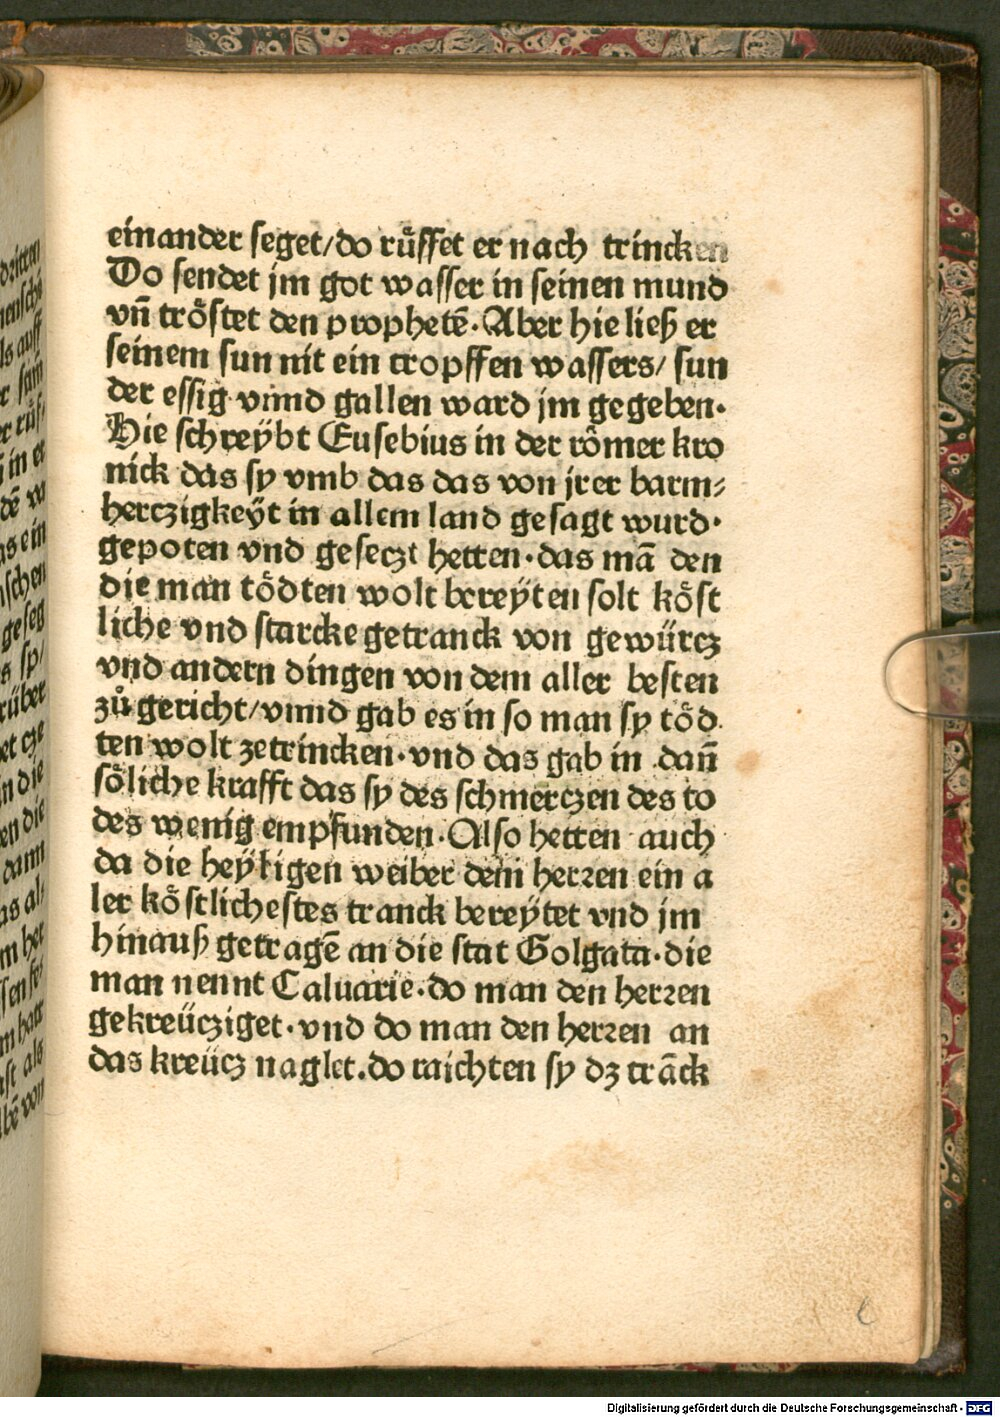 einander seget/do růffet er nach trincken
Do sendet jm got wasser in seinen mund
vn̄ trőstet den prophetē·Aber hie ließ er
seinem sun nit ein tropffen wassers/ sun
der essig vnnd gallen ward jm gegeben·
Hie schreÿbt Eusebius in der rőmer kro
nick das sy vmb das das von jrer barm⸗
herczigkeÿt in allem land gesagt wurd·
gepoten vnd geseczt hetten·das mā den
die man tődten wolt bereÿten solt kőst
liche vnd starcke getranck von gewürcz
vnd andern dingen von dem aller besten
zů gericht/vnnd gab es in so man sy tőd
ten wolt zetrincken·vnd das gab in dan̄
sőliche krafft das sy des schmerczen des to
des wenig empfunden·Also hetten auch
da die heÿligen weiber dem herren ein a
ler kőstlichestes tranck bereÿtet vnd jm
hinauß getragē an die stat Golgata·die
man nennt Caluarie·do man den herren
gekreücziget·vnd do man den herren an
das kreücz naglet·do raichten sy dz trāck
dritten
als auff
in er
as ein
geseg
rüber
in die
en die
dann
as al⸗
m her
ast als
bē von
Digitalisierung gefördert durch die Deutsche Forschungsgemeinschaft - DFG